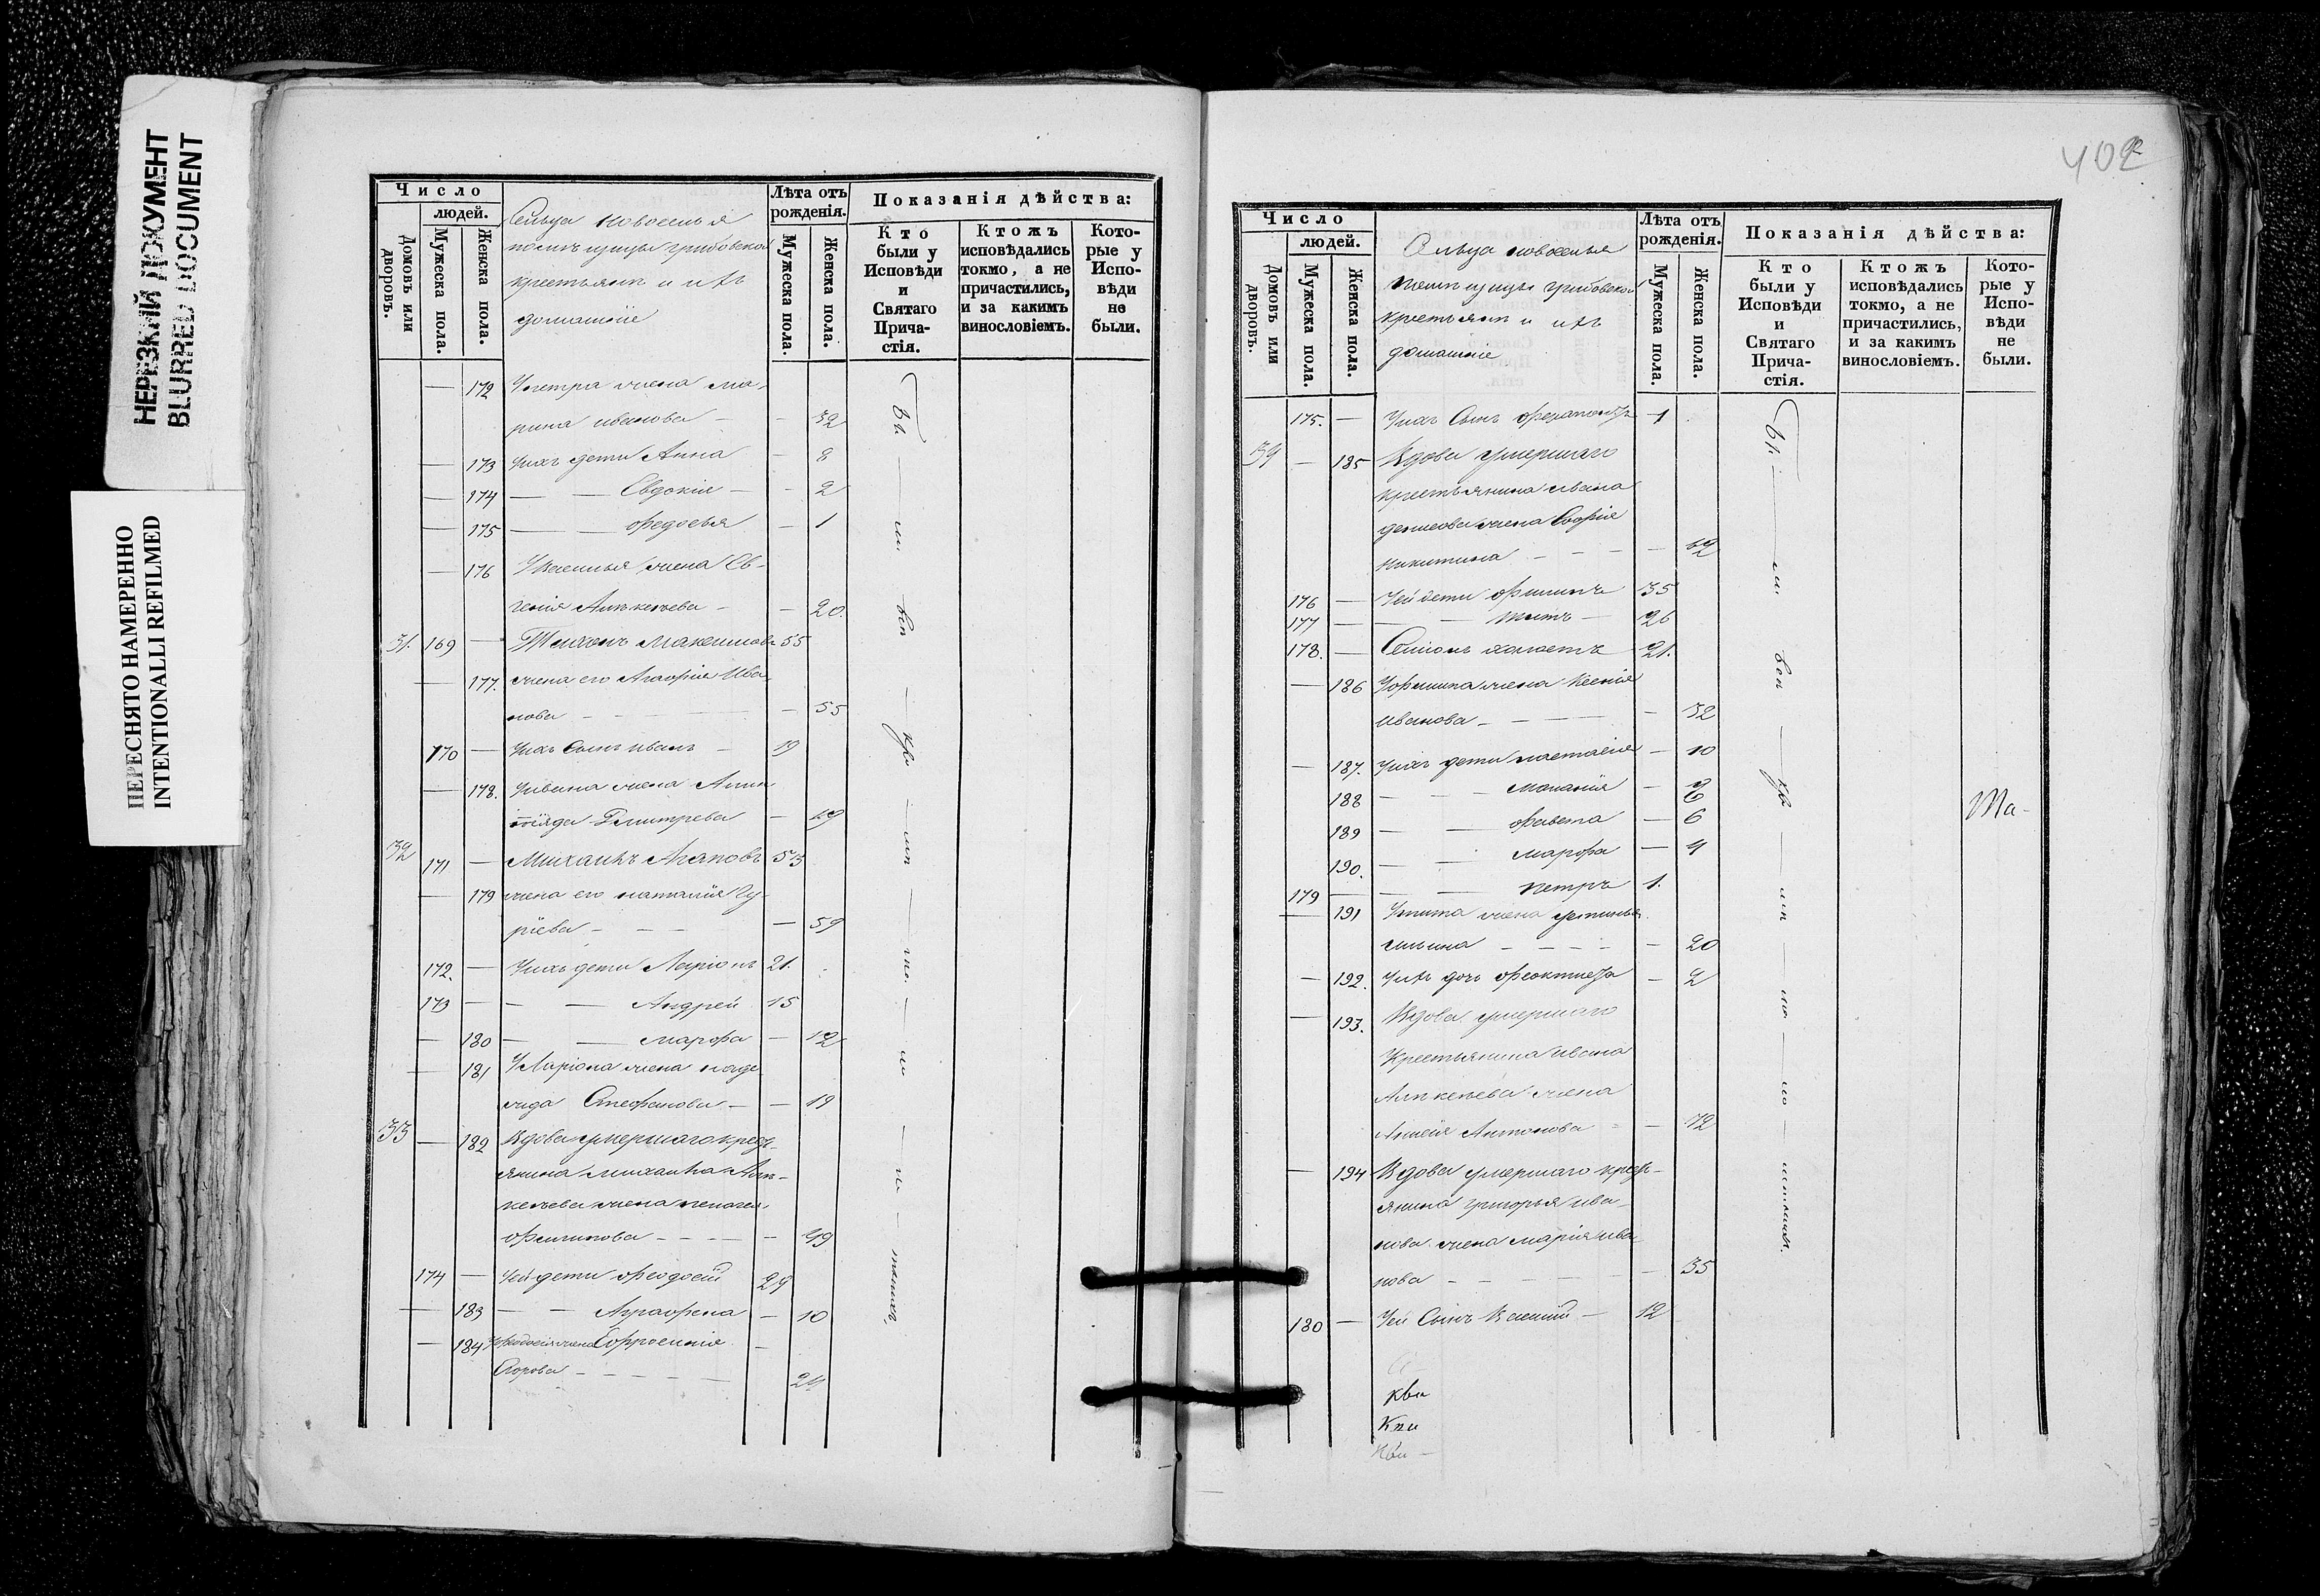 НЕРЕЗКИЙ ДОКУМЕНТ
BLURRED DOCUMENT
ПЕРЕСНЯТО НАМЕРЕННО
INTENTIONALLI REFILMED
Число
людей.
Домовъ или дворовъ.
Мужеска пола.
Женска пола.
Сельца Новоселья
помѣщицы Грибовской
крестьяне и ихъ
домашніе
Лѣта отъ рожденія.
Мужеска пола.
Женска пола.
Показанія дѣйства:
Кто были у Исповѣди и Святаго Прича-стія.
Ктожъ исповѣдались токмо, а не причастились, и за какимъ винословіемъ.
Кото-рые у Испо-вѣди не были.
— 172 У петра жена Ма-
рина иванова — — 32
— 173 У ихъ дети Анна — 8
— 174 — — Евдокія — — 2
— 175 — — Федосья — 1
— 176 У Василья жена Ев-
генія Алексѣева — — 20.
31. 169 — Тихонъ Максимовъ 55
— 177. жена его Агафія Ива-
нова — — 55
170 — У ихъ Сынъ иванъ — 19
— 178. У ивана жена
Дмитрева — 19
32 171 — Михаилъ Агаповъ 53
— 179 жена его наталія Гу-
ріева — — — 59
172. — У ихъ дети Ларіонъ 21.
173 — — — Андрей 15
— 180 — — марфа — 12
— 181 У Ларіона жена наде-
жда Стефанова — — 19
33 — 182 Вдова умершаго кресть-
янина михаила Але-
ксѣева жена пелагея
Филипова — — — — 49
174 — У ей дети Феодосій 24
— 183 — — Аграфена — 10
— 184 У Феодосія жена Ефросинія —
Егорова — — — — 24
402
Число
людей.
Домовъ или дворовъ.
Мужеска пола.
Женска пола.
Сельца новоселья
помѣщицы Грибовской
крестьяне и ихъ
домашніе
Лѣта отъ рожденія.
Мужеска пола.
Женска пола.
Показанія дѣйства:
Кто были у Исповѣди и Святаго Прича-стія.
Ктожъ исповѣдались токмо, а не причастились, и за какимъ винословіемъ.
Кото-рые у Испо-вѣди не были.
175. — У ихъ Сынъ Ферапонтъ 1
34 — 185 Вдова умершаго
крестьянина ивана
денисова жена Софія
никитина — — — — 62
176 — У ей дети Филипъ 35
177 — — — титъ — 26
178. — Семіонъ холостъ 21.
— 186 У Филипа жена Ксенія
иванова — — — — 32
— 187. У ихъ дети настасія — 10
188 — — — меланія — 8
189 — — Фавета — 6
190. — — марфа — 4
179 — — петръ 1.
— 191 У тита жена устинья
ильина — — — — 20
— 192. У ихъ дочь Феоктиста — 2
— 193. Вдова умершаго
Крестьянина ивана
Алексѣева жена
Антонова — — 72
— 194 Вдова умершаго кресть-
янина григорья ива-
нова жена марія ива-
нова — — — — 35
180 — У ей Сынъ Василій — 12
Ма-